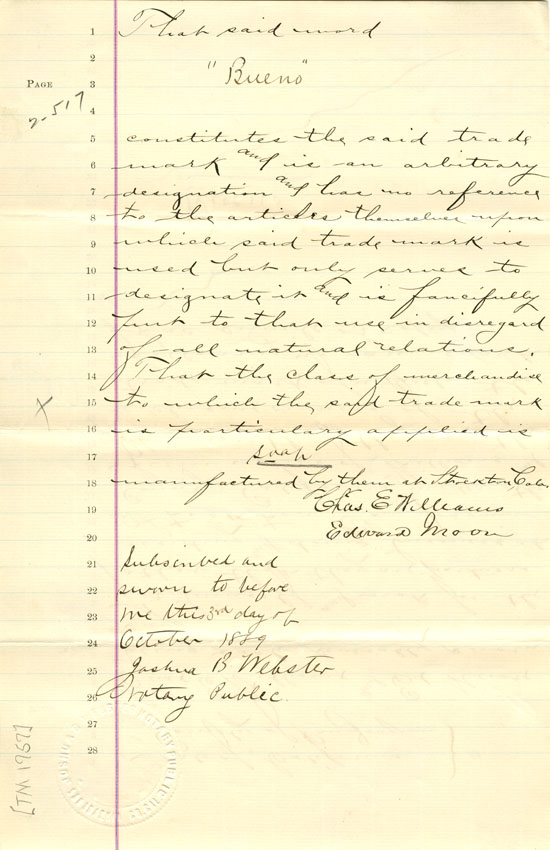 1 That said word
2
3 "Bueno"
PAGE
2-517
4
5 constitutes the said trade
6 mark and is an arbitrary
7 designation and has no reference
8 to the articles themselves upon
9 which said trade mark is
10 used but only serves to
11 designate it and is fancifully
12 put to that use in disregard
13 of all natural relations.
14 That the class of merchandise
15 to which the said trade mark
X
16 is particulary applied is
17 soap
18 manufactured by them at Stockton, Cala
19 Chas. E Williams
20 Edward Moon
21 Subscribed and
22 sworn to before
23 me this 3rd day of
24 October 1889
25 Joshua B Webster
26 Notary Public.
27
28
[TM 1757]